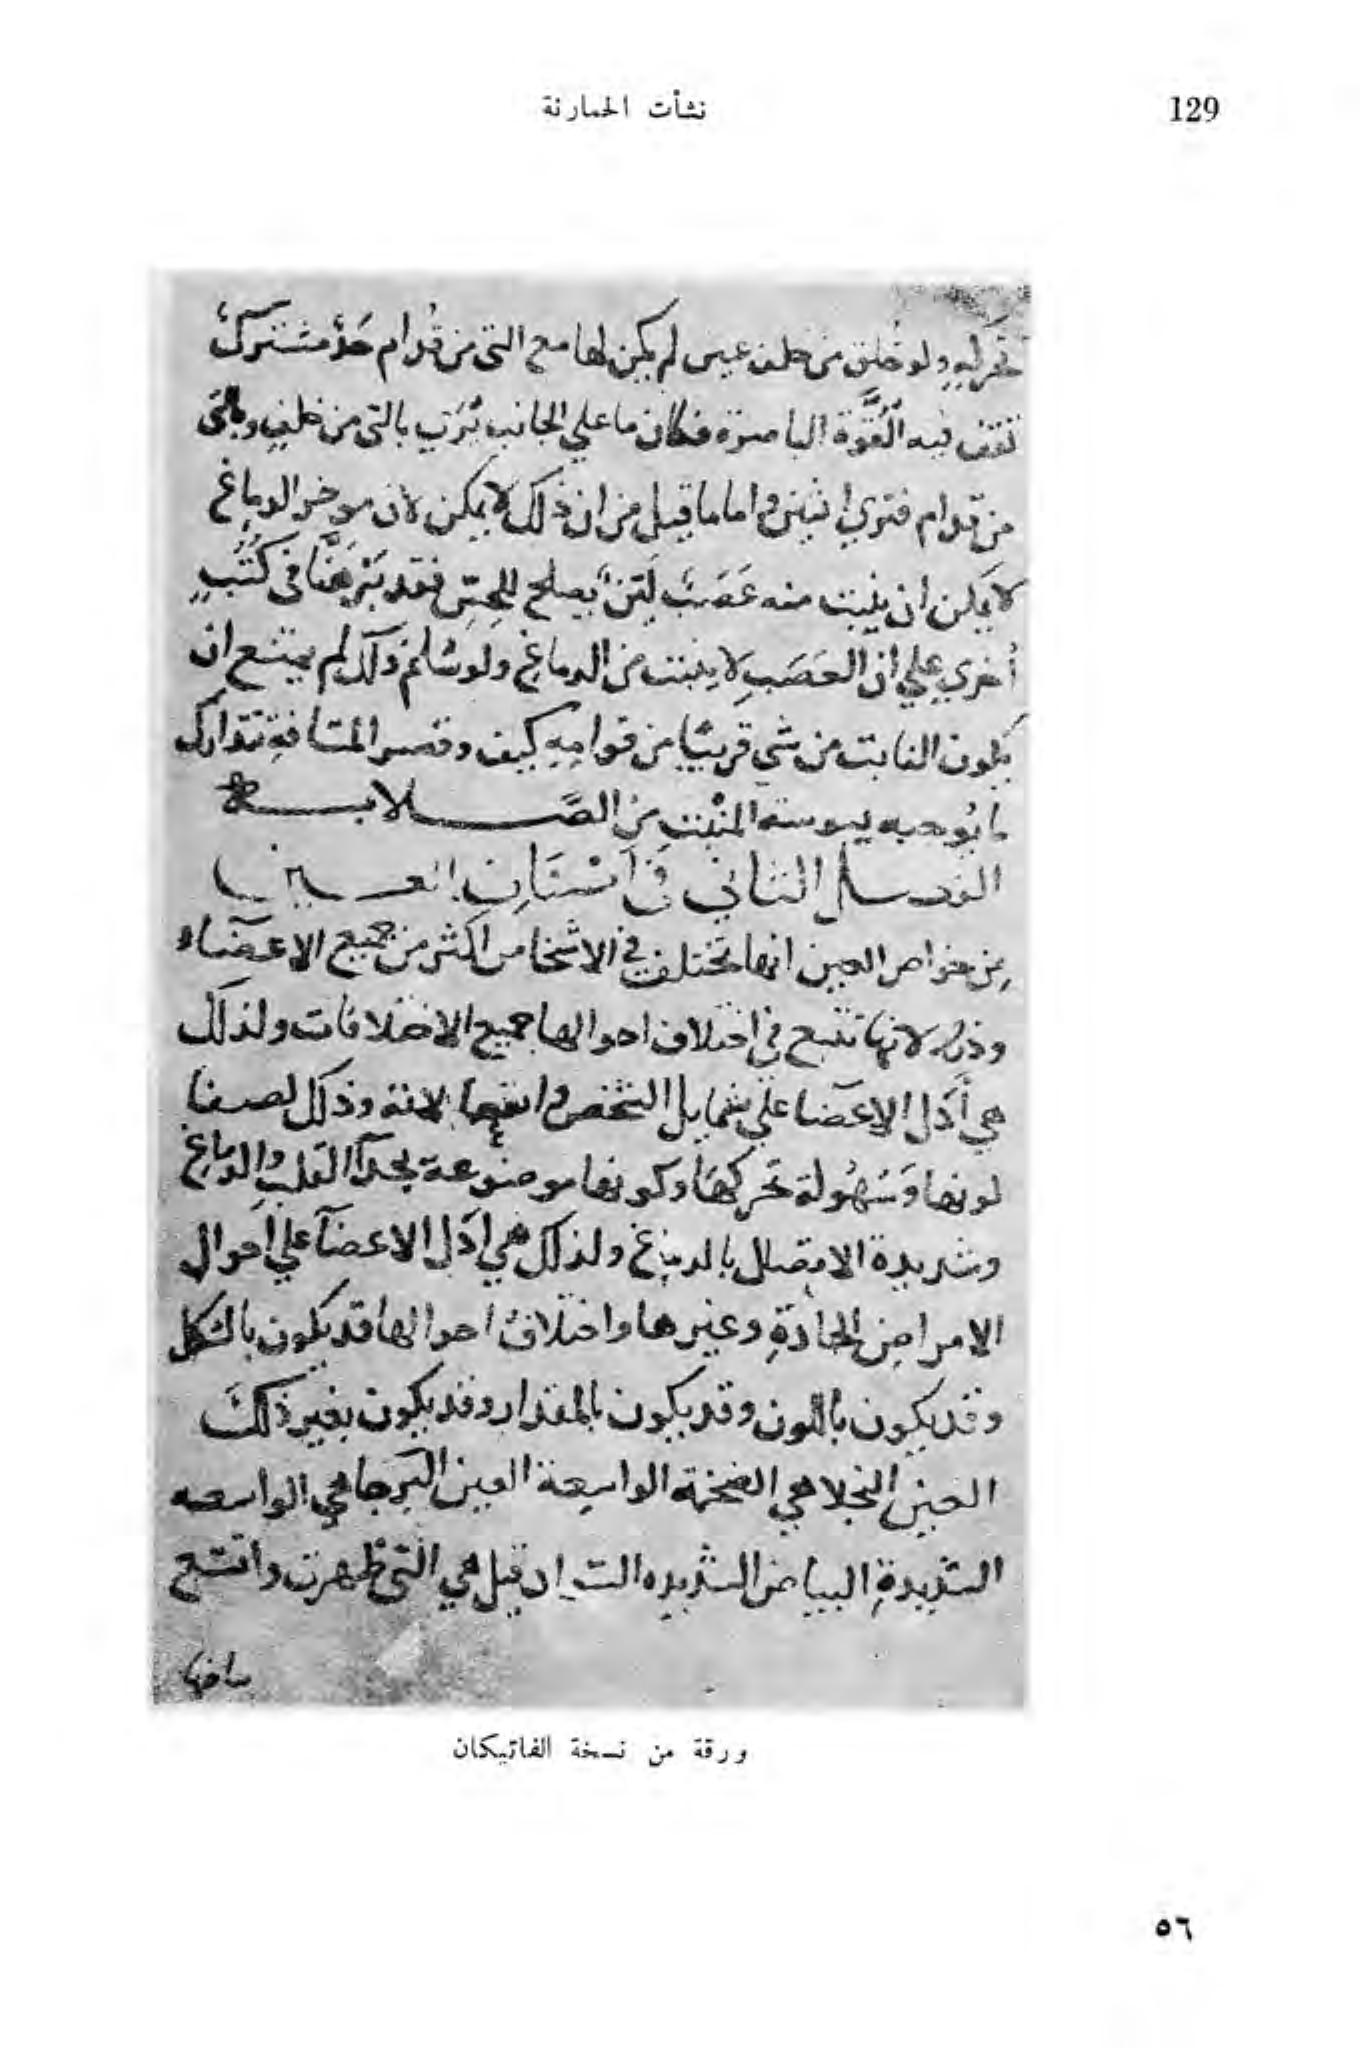 نشأت الحمارنة
129
تحركه ولو خلق من خلف عين لم يكن لها مع التي من قُدام حدٌ مشتركٌ
تقف فيه القُوَّة الباصرة فكان ما علي الجانب يُرَي بالتي من خلفٍ وبالتي
من قدام فتري اثنين واما ما قيل من ان ذلك لا يمكن لان موخر الدماغ
لا يمكن ان ينبت منه عَصَبٌ لَيّنٌ يصلح للحِسّ فقد بَرْهَنَّا في كُتُبٍ
أخري علي ان العَصَبِ لا ينبت من الدماغ ولو سُلم ذلك لم يمتنع ان
يكون النابت من شي قريبًا من قوامهِ كيف وقصر المسافةِ تتدارك
ما يُوجبه يبوسة المنْبت من الصَّلابه
الفصل الثاني في اسْنَانِ العين
مِن خواص العين انها تختلف في الاشخاص اكثر من جميع الاعضاء
وذلك لانها تتبع في اختلاف احوالها جميع الاختلافات ولذلك
هي أدَل الاعضا علي شمايل الشخص وذلك لصفا
لونها وَسُهُولة تحركها وكونها موضوعة بحذا القلب والدماغ
وشديدة الاتصال بالدماغ ولذلك هي ادَل الاعضآ علي احوال
الامراضِ الحادَةِ وغيرها واختلافُ احوالها قد يكون بالشكل
وقد يكون باللون وقد يكون بالمقدار وقد يكون بغير ذلك
العين النجلا هي الضخمة الواسِعة العين البَرجا هي الواسعه
الشديدةِ البياض الشديده السواد قيل هي التي ظهرت واتسع
بياضها
ورقة من نسخة الفاتيكان
٥٦